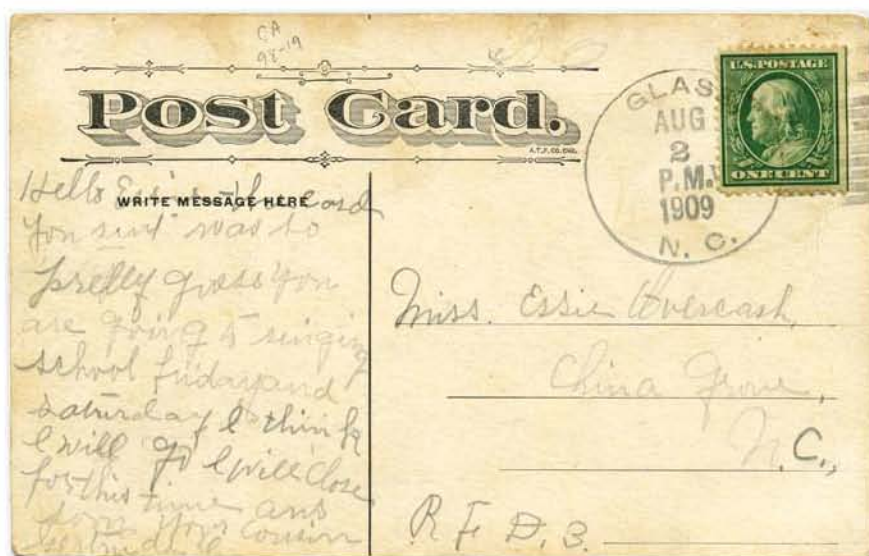 CA
98-19
Post Card.
A.T.F. CO. ENG.
WRITE MESSAGE HERE
Hello Essie the card
you sint was to
pretty guess you
are going to singing
school friday and
saturday I think
I will go I will close
for this time ans
soon your cousin
U.S. POSTAGE
ONE CENT
GLASS
AUG
2
P.M.
1909
N. C.
Miss. Essie Overcash,
China Grove,
N.C.,
R F D. 3.